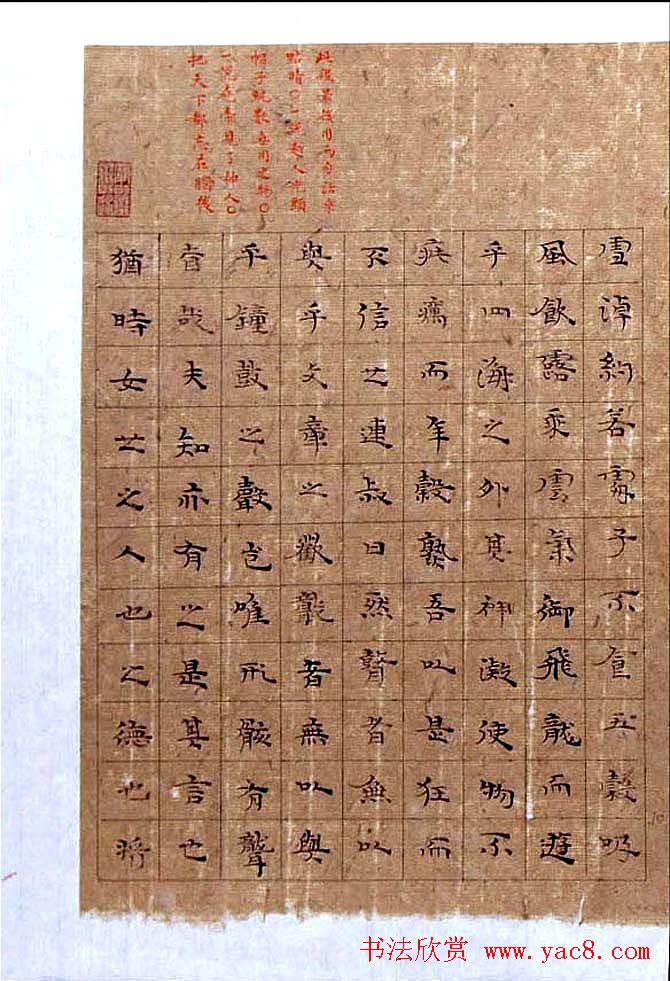 點睛〇一
帽子 無用之物〇
一說 見了神人〇
把天下都忘在腦後
雪淖約若處子不食五穀吸
風飲露乘雲氣御飛龍而遊
乎四海之外其神凝使物不
疵癘而年穀熟吾以是狂而
不信也連叔曰然瞽者無以
與乎文章之觀聾者無以與
乎鐘鼓之聲豈唯形骸有聾
盲哉夫知亦有之是其言也
猶時女也之人也之德也將
书法欣赏 www.yac8.com